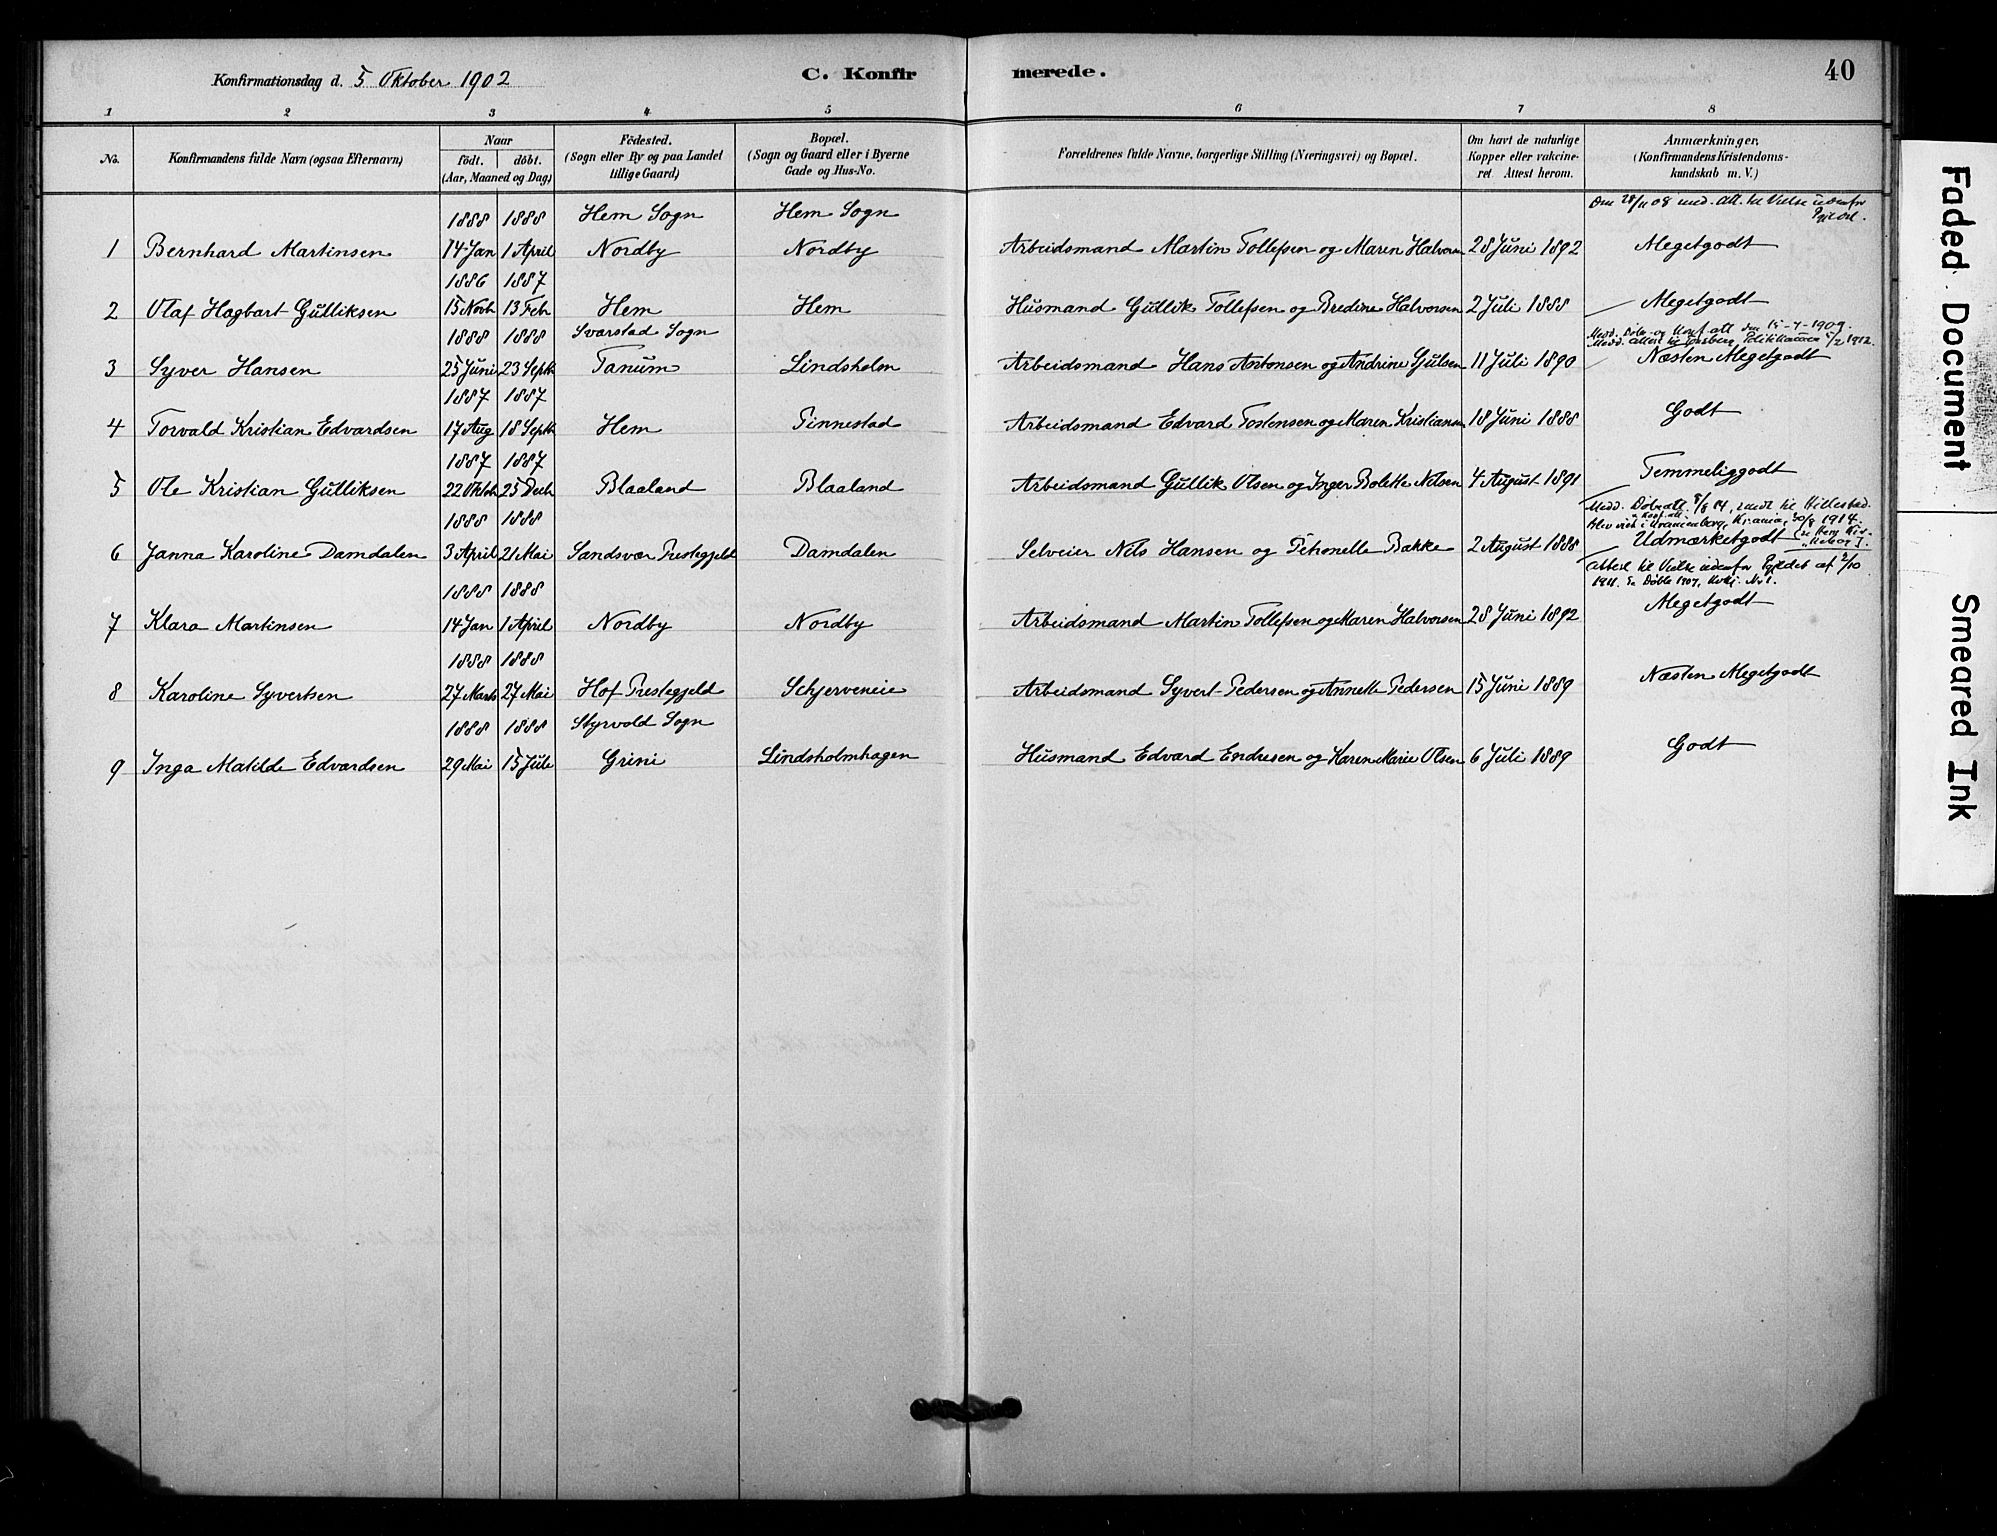 Konfirmationsdag d. 5 Oktober 1902
C. Konfirmerede.
40
1 2 3 4 5 6 7 8
No.
Konfirmandens fulde Navn (ogsaa Efternavn)
Naar
födt. döbt.
(Aar, Maaned og Dag)
Födested.
(Sogn eller By og paa Landet
tillige Gaard)
Bopæl.
(Sogn og Gaard eller i Byerne
Gade og Hus-No.
Forældrenes fulde Navne, borgerlige Stilling (Næringsvei) og Bopæl.
Om havt de naturlige
Kopper eller vakcine-
ret. Attest herom.
Anmærkninger.
(Konfirmandens Kristendoms-
kundskab m. V.)
1888 1888 Hem Sogn Hem Sogn Den 28/11 08 med. att. til Vielse udenfor
1 Bernhard Martinsen 14 Jan 1 April Nordby Nordby Arbeidsmand Martin Tollefsen og Maren Halvorsen 28 Juni 1892 Megetgodt
1886 1887
2 Olaf Hagbart Gulliksen 15 Novb 13 Febr Hem Hem Husmand Gullik Tollefsen og Bredine Halvorsen 2 Juli 1888 Megetgodt
1888 1888 Svarstad Sogn Medd. Döbs- og Konf. att. den 15-7-1909.
Medd. attest til Tönsberg Politikammer 5/2 1912.
3 Syver Hansen 25 Juni 23 Septb Tanum Lindsholm Arbeidsmand Hans Antonsen og Andrine Gulsen 11 Juli 1890 Næsten Megetgodt
1887 1887
4 Torvald Kristian Edvardsen 17 Aug 18 Septb Hem Pinnestad Arbeidsmand Edvard Tostensen og Maren Kristiansen 18 Juni 1888 Godt
1887 1887
5 Ole Kristian Gulliksen 22 Oktob 25 Decb Blaaland Blaaland Arbeidsmand Gullik Olsen og Inger Bolette Nilsen 4 August 1891 Temmeliggodt
1888 1888 Medd. Döbsatt. 8/8 14, sendt til Hillestad.
Blev viet i Uranienborg, Krania, 30/8 1914.
6 Janna Karoline Damdalen 3 April 21 Mai Sandsvær Prestegjeld Damdalen Selveier Nils Hansen og Petronelle Bakke 2 August 1888 Udmærketgodt
1888 1888 Attest til Vielse udenfor Pgjeldet af 2/10
1911. Se Döbte 1907,
7 Klara Martinsen 14 Jan 1 April Nordby Nordby Arbeidsmand Martin Tollefsen og Maren Halvorsen 28 Juni 1892 Megetgodt
1888 1888
8 Karoline Syvertsen 27 Marts 27 Mai Hof Prestegjeld Schjerveneie Arbeidsmand Syvert Pedersen og Annette Pedersen 15 Juni 1889 Næsten Megetgodt
1888 1888 Styrvold Sogn
9 Inga Matilde Edvardsen 29 Mai 15 Juli Grini Lindsholmhagen Husmand Edvard Endresen og Karen Marie Olsen 6 Juli 1889 Godt
Faded Document
Smeared Ink